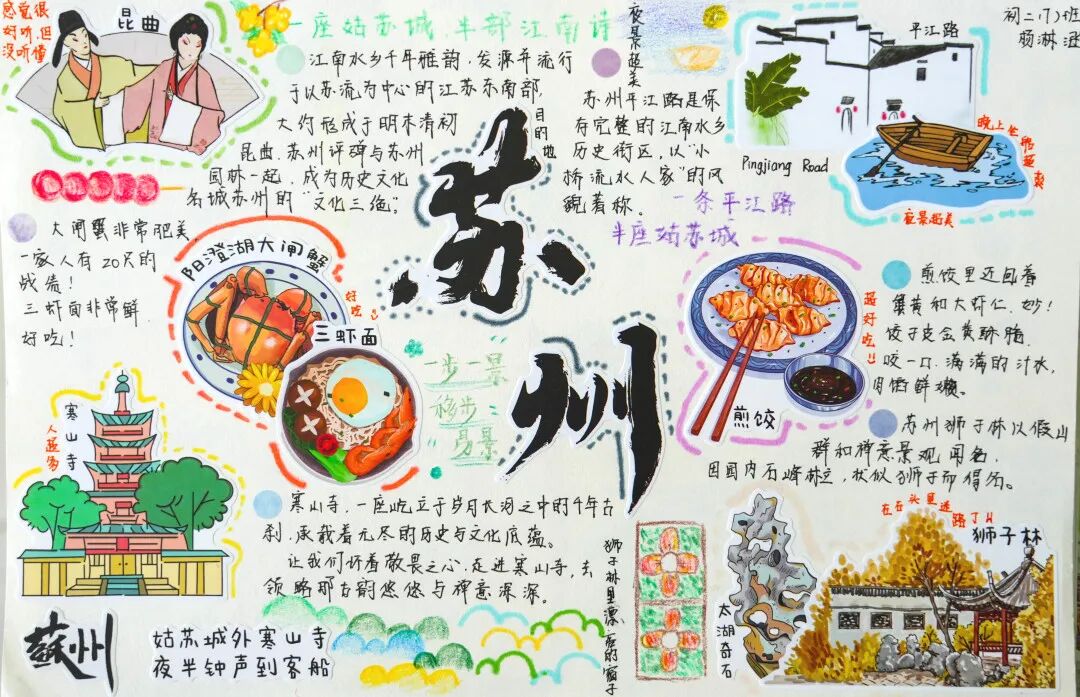 感觉很
好听,但
没听懂
昆曲
一座姑苏城,半部江南诗
江南水乡千年雅韵,发源并流行
于以苏流为中心的江苏东南部,
大约形成于明末清初
昆曲、苏州评弹与苏州
园林一起,成为历史文化
名城苏州的“文化三绝”。
夜景超美
目的地
苏州
苏州平江路是保
存完整的江南水乡
历史街区,以“小
桥流水人家”的风
貌着称。
一条平江路
半座姑苏城
初二(7)班
平江路
Pingjiang Road
夜景超美
大闸蟹非常肥美,
一家人有20只的
战绩!
三虾面非常鲜
好吃!
阳澄湖大闸蟹
好吃!!
三虾面
一步一景
移步
易景
煎饺
超好吃!!
煎饺里还包着
蟹黄和大虾仁,妙!
饺子皮金黄酥脆,
咬一口,满满的汁水,
肉馅鲜嫩。
苏州狮子林以假山
群和禅意景观闻名,
因园内石峰林立,状似狮子而得名。
寒山寺
人超多
寒山寺,一座屹立于岁月长河之中的千年古
刹,承载着无尽的历史与文化底蕴。
让我们怀着敬畏之心,走进寒山寺,去
领略那古韵悠悠与禅意深深。
蘇州
姑苏城外寒山寺
夜半钟声到客船
狮子林里漂亮的窗子
太湖奇石
在石头里迷
路了
狮子林